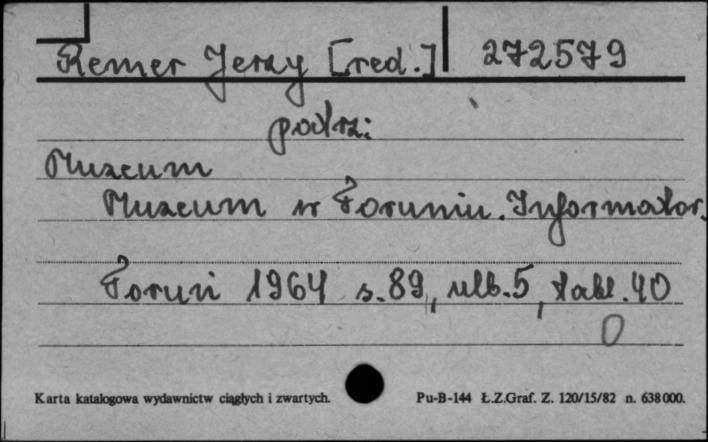 Remer Jerzy [red.] 272579
patrz:
Muzeum
Muzeum w Toruniu. Informator.
Toruń 1964 s. 89, nlb. 5, tabl. 40
0
Karta katalogowa wydawnictw ciągłych i zwartych. Pu-B-144 Ł.Z.Graf. Z. 120/15/82 n. 638000.